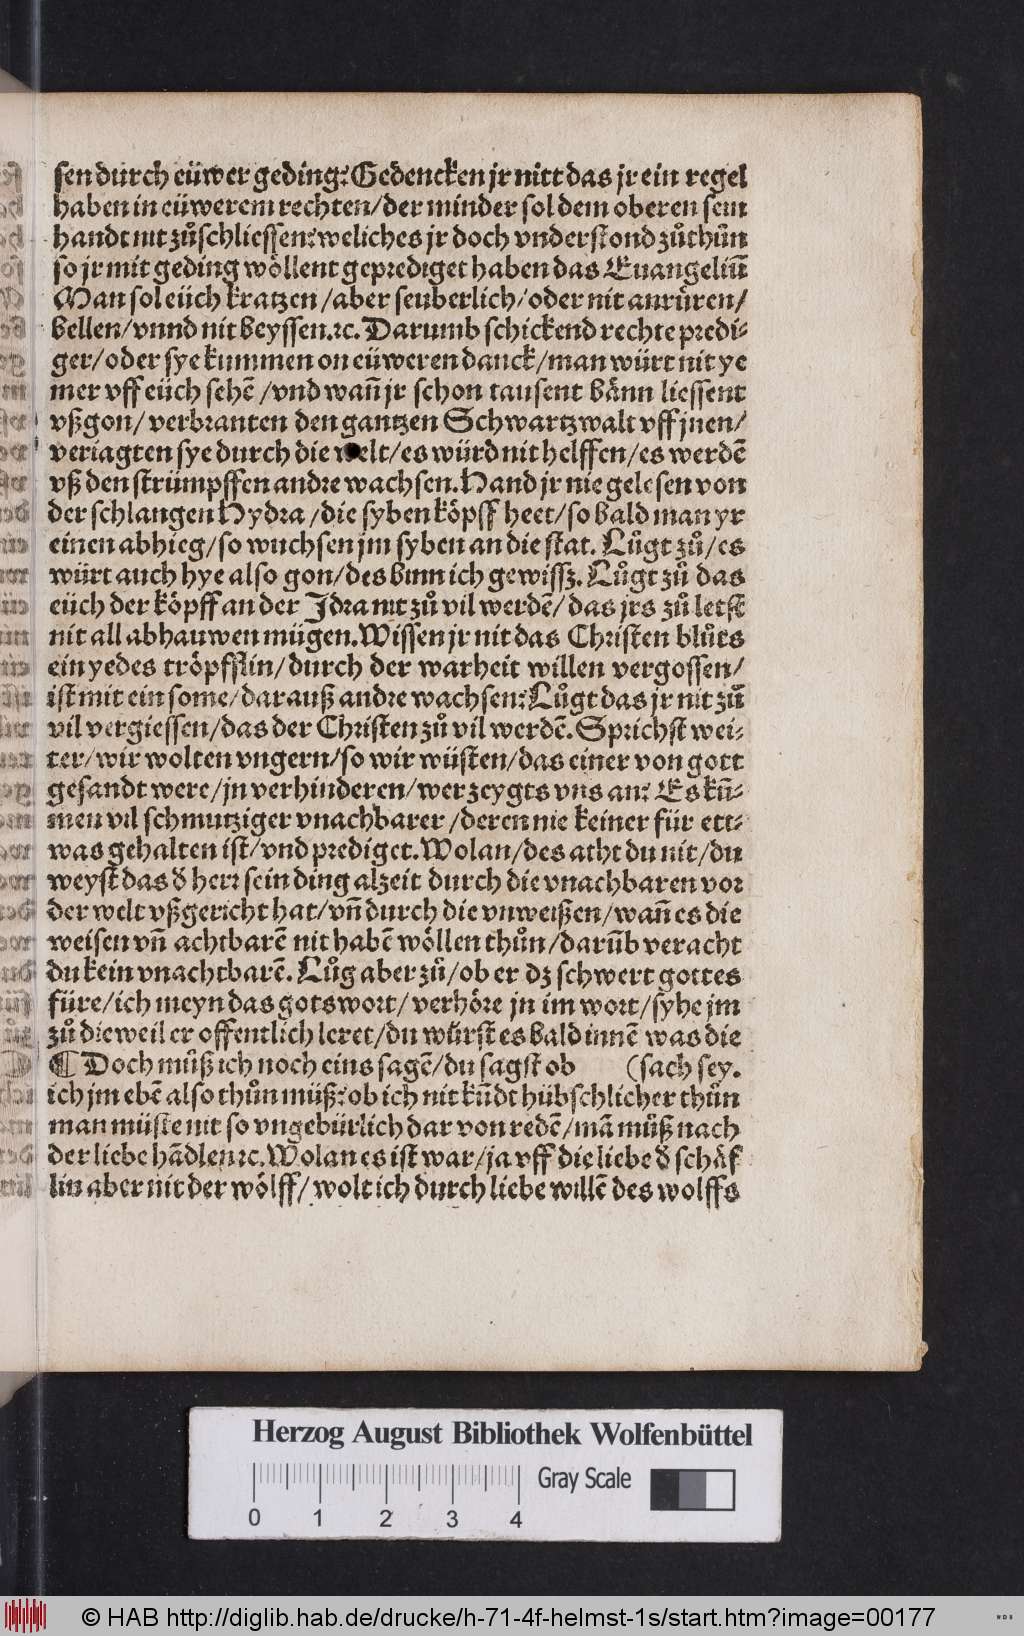 sen durch eüwer geding? Gedencken jr nitt das jr ein regel
haben in eüwerem rechten/der minder sol dem oberen sein
handt nit zůschliessen? weliches jr doch vnderstond zůthůn
so jr mit geding wöllent geprediget haben das Euangeliū̃
Man sol eüch kratzen/aber seuberlich/oder nit anrüren/
bellen/vnnd nit beyssen.ꝛc. Darumb schickend rechte predi⸗
ger/oder sye kummen on eüweren danck/man würt nit ye
mer vff eüch sehē/vnd wañ jr schon tausent bänn liessent
vßgon/verbranten den gantzen Schwartzwalt vff jnen/
veriagten sye durch die welt/es würd nit helffen/es werdē
vß den strümpffen andre wachsen. Hand jr nie gelesen von
der schlangen Hydra/die syben köpff heet/so bald man yr
einen abhieg/so wuchsen jm syben an die stat. Lůgt zů/es
würt auch hye also gon/des binn ich gewissz. Lůgt zů das
eüch der köpff an der Idra nit zů vil werdē/das jrs zů letst
nit all abhauwen mügen. Wissen jr nit das Christen blůts
ein yedes tröpfflin/durch der warheit willen vergossen/
ist mit ein some/darauß andre wachsen? Lůgt das jr nit zů
vil vergiessen/das der Christen zů vil werdē. Sprichst wei⸗
ter/wir wolten vngern/so wir wüsten/das einer von gott
gesandt were/jn verhinderen/wer zeygts vns an? Es kū̃⸗
men vil schmutziger vnachbarer/deren nie keiner für ett⸗
was gehalten ist/vnd prediget. Wolan/des atht du nit/du
weyst das d̕ herr sein ding alzeit durch die vnachbaren vor
der welt vßgericht hat/vñ durch die vnweißen/wañ es die
weisen vñ achtbarē nit habē wöllen thůn/darūb veracht
du kein vnachtbarē. Lůg aber zů/ob er dz schwert gottes
füre/ich meyn das gots wort/verhöre jn im wort/syhe jm
zů dieweil er offentlich leret/du würst es bald innē was die
¶ Doch můß ich noch eins sagē/du sagst ob (sach sey.
ich jm ebē also thůn müß? ob ich nit kūdt hübschlicher thůn
man müste nit so vngebürlich dar von redē/mā můß nach
der liebe hādlen ꝛc. Wolan es ist war/ja vff die liebe d̕ schäf
lin aber nit der wölff/wolt ich durch liebe willē des wolffs
Herzog August Bibliothek Wolfenbüttel
0 1 2 3 4 Gray Scale
© HAB http://diglib.hab.de/drucke/h-71-4f-helmst-1s/start.htm?image=00177